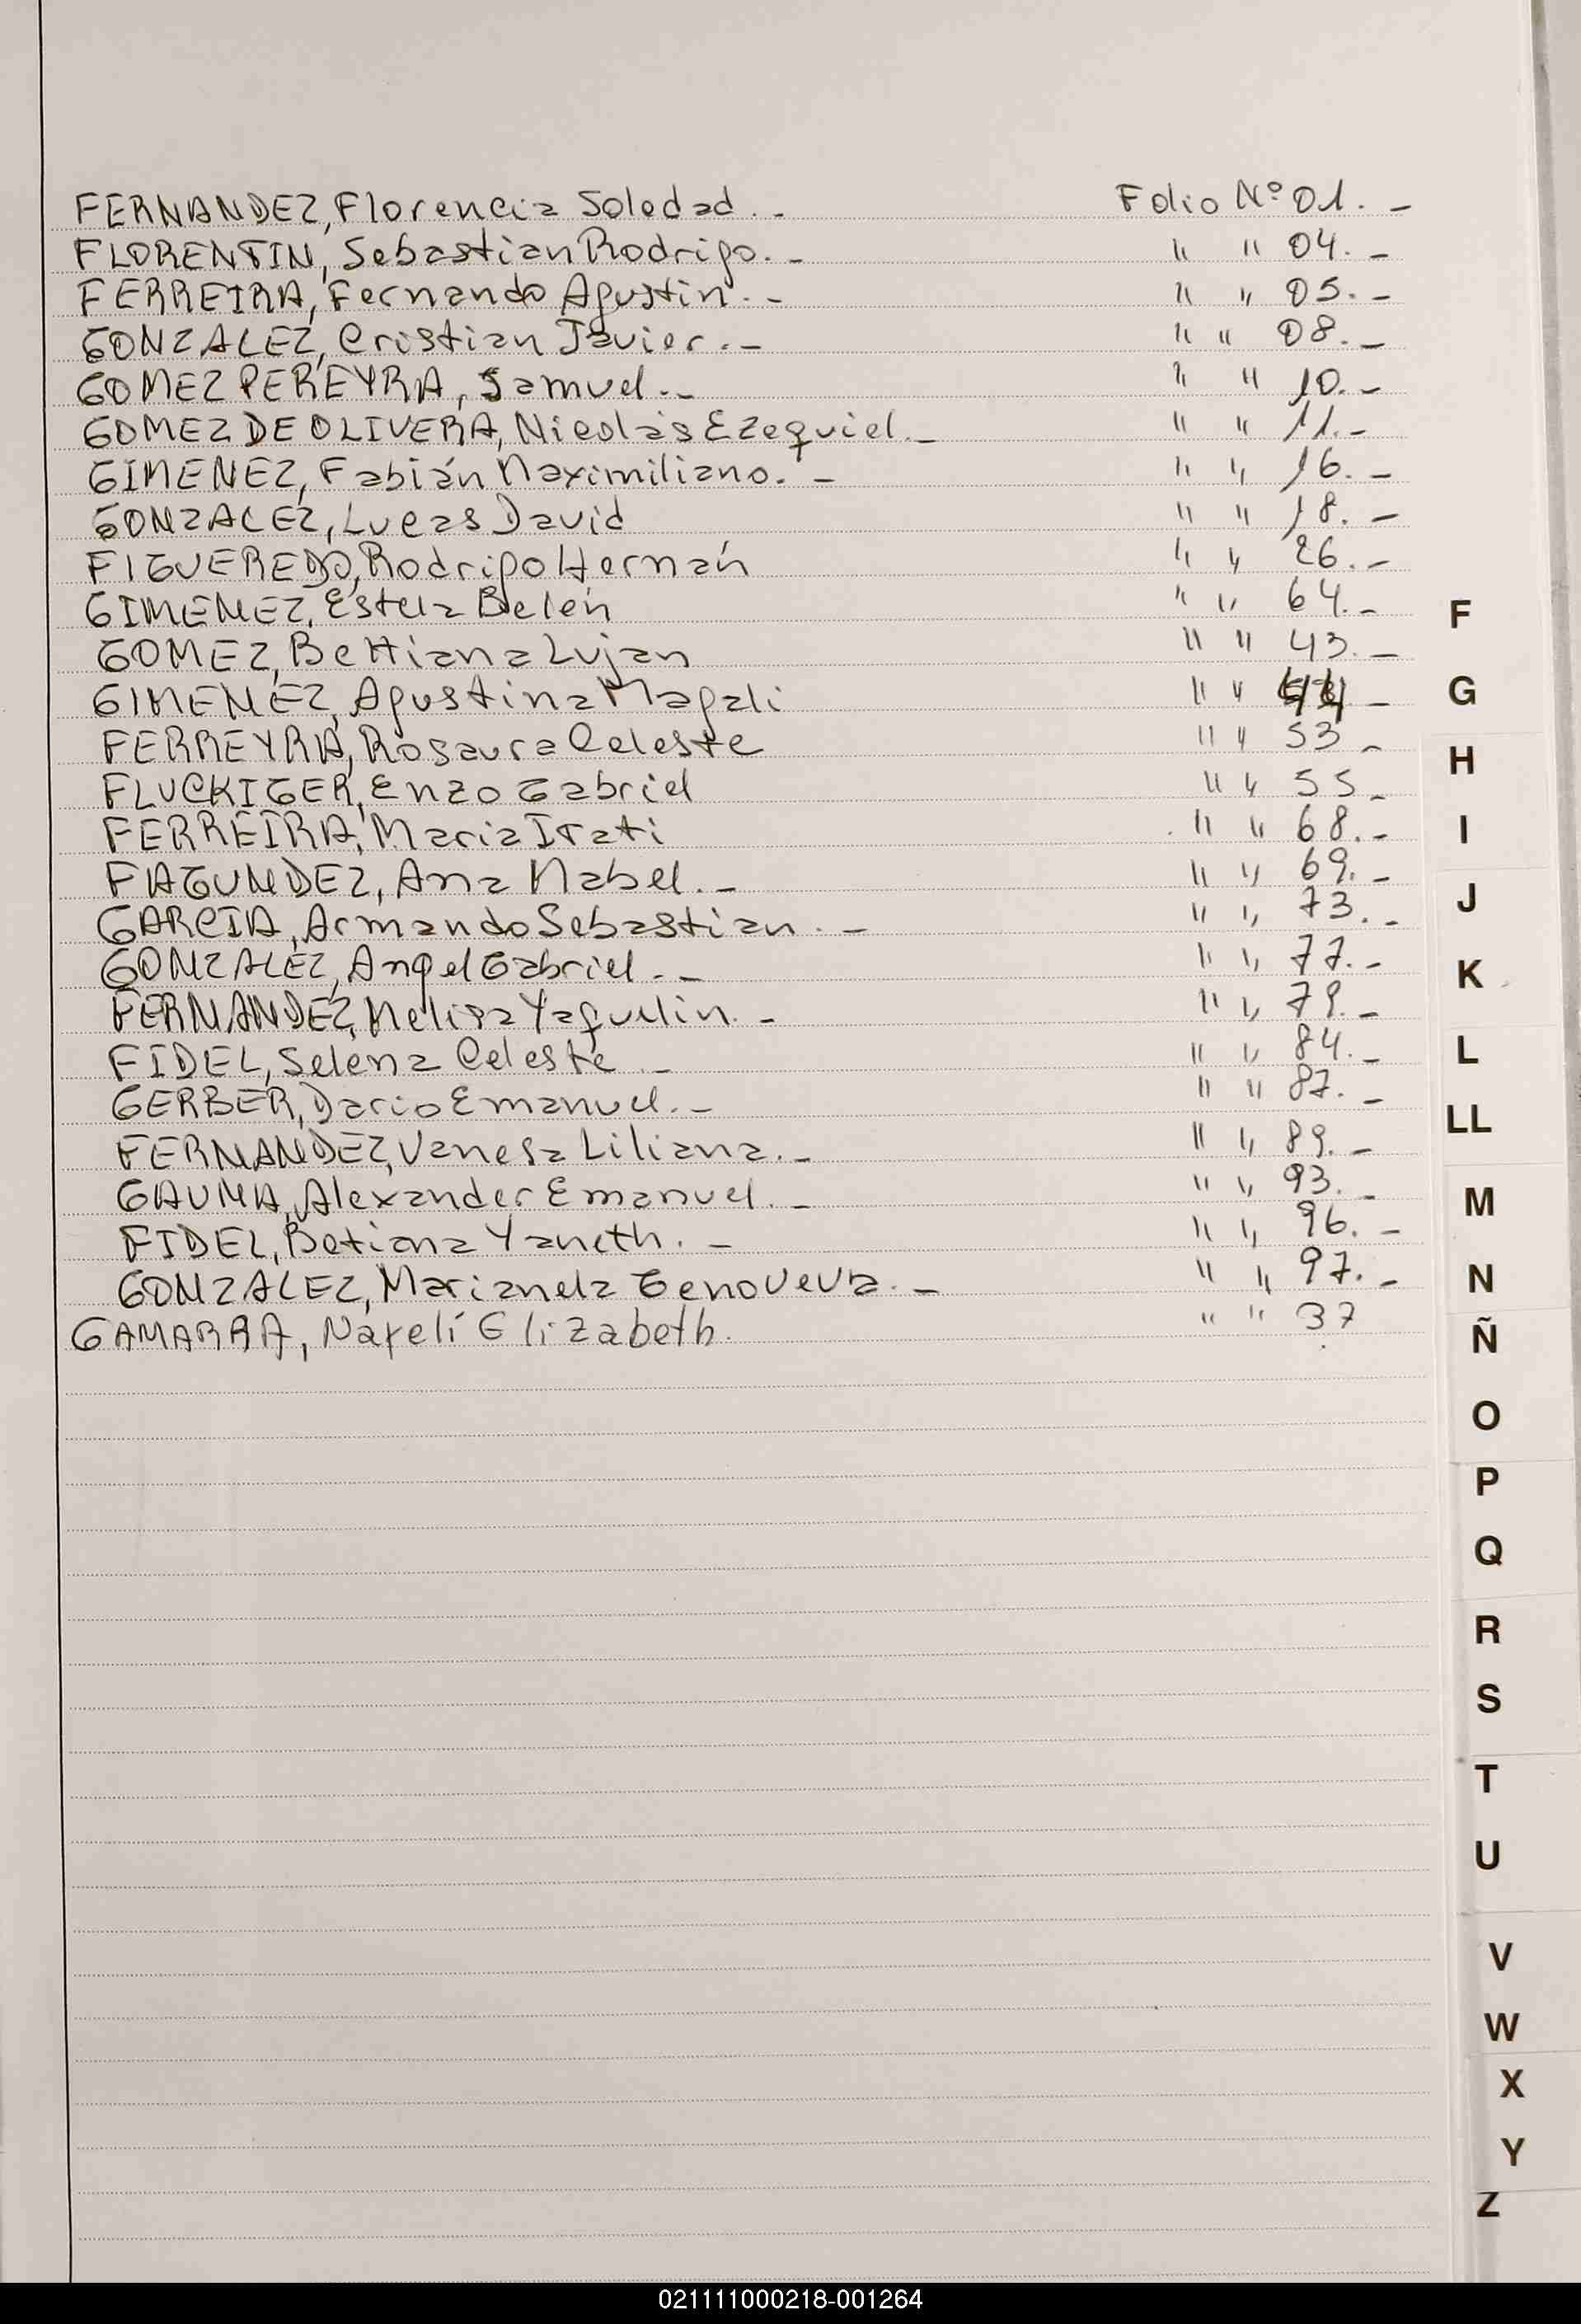 FERNANDEZ, Florencia Soledad. - Folio Nº 01. -
FLORENTIN, Sebastian Rodrigo. - " " 04. -
FERREIRA, Fernando Agustin. - " " 05. -
GONZALEZ, Cristian Javier. - " " 08. -
GOMEZ PEREYRA, Samuel. - " " 10. -
GOMEZ DE OLIVERA, Nicolás Ezequiel. - " " 11. -
GIMENEZ, Fabián Maximiliano. - " " 16. -
GONZALEZ, Lucas David " " 18. -
FIGUEREDO, Rodrigo Hernán " " 26. -
GIMENEZ, Estela Belén " " 64. -
GOMEZ, Bettiana Lujan " " 43. -
GIMENEZ, Agustina Magali " " -
FERREYRA, Rosaura Celeste " " 53 -
FLUCKIGER, Enzo Gabriel " " 55 -
FERREIRA, Maria Itati " " 68. -
FAGUNDEZ, Ana Mabel. - " " 69. -
GARCIA, Armando Sebastian. - " " 73. -
GONZALEZ, Angel Gabriel. - " " 77. -
FERNANDEZ, Melisa Yaquelin. - " " 79. -
FIDEL, Selena Celeste. - " " 84. -
GERBER, Dario Emanuel. - " " 87. -
FERNANDEZ, Vanesa Liliana. - " " 89. -
GAUMA, Alexander Emanuel. - " " 93. -
FIDEL, Betiana Yaneth. - " " 96. -
GONZALEZ, Marianela Genoveva. - " " 97. -
GAMARRA, Nayeli Elizabeth. " " 37
F
G
H
I
J
K
L
LL
M
N
Ñ
O
P
Q
R
S
T
U
V
W
X
Y
Z
021111000218-001264